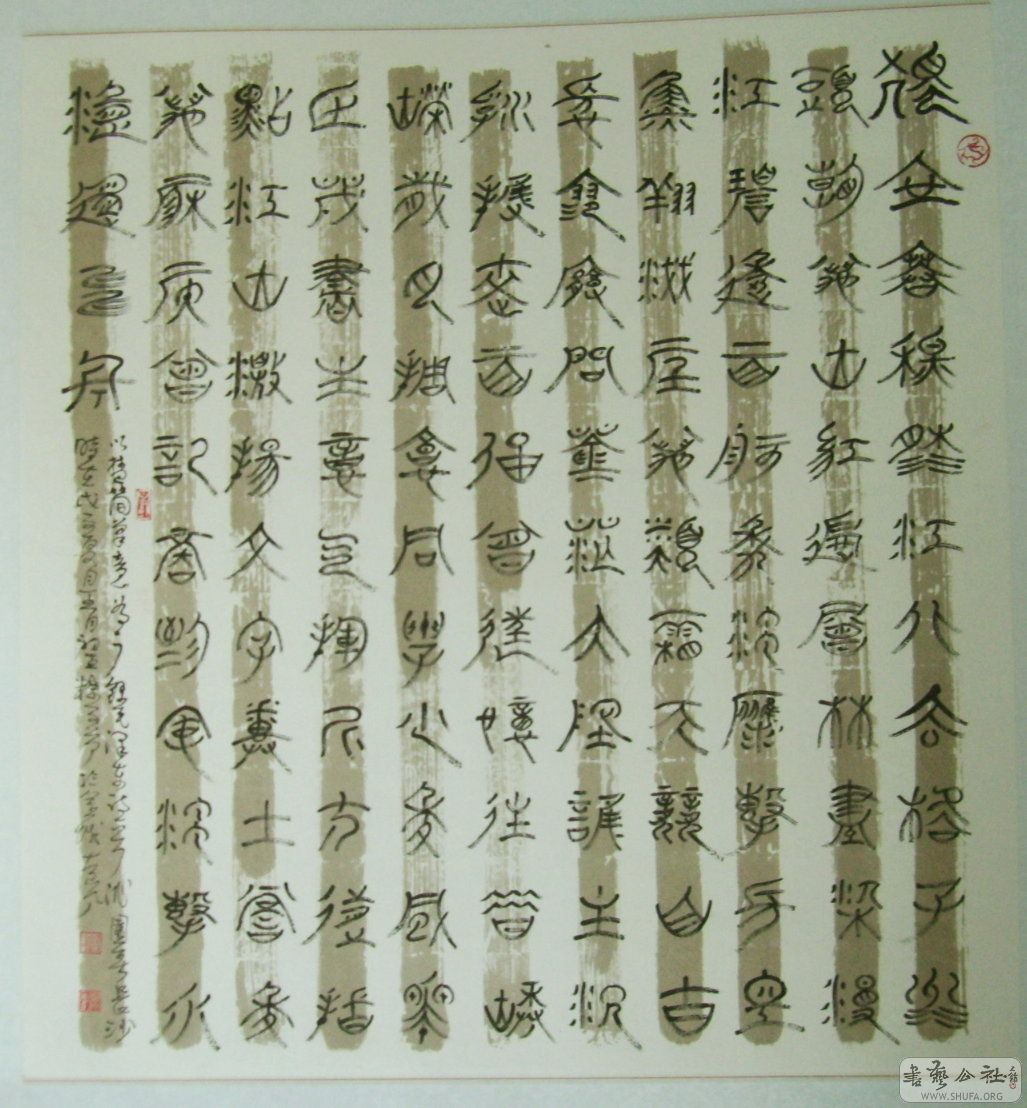 獨立寒秋湘江北去橘子洲
頭看萬山紅遍層林盡染漫
江碧透百舸爭流鷹擊長空
魚翔淺底萬類霜天競自由
悵寥廓問蒼茫大地誰主沉
浮攜來百侶曾游憶往昔崢
嶸歲月稠恰同學少年風華
正茂書生意氣揮斥方遒指
點江山激揚文字糞土當年
萬戶侯曾記否到中流擊水
浪遏飛舟
以楚簡筆意為之錄毛澤東沁園春長沙
書藝公社
WWW.SHUFA.ORG